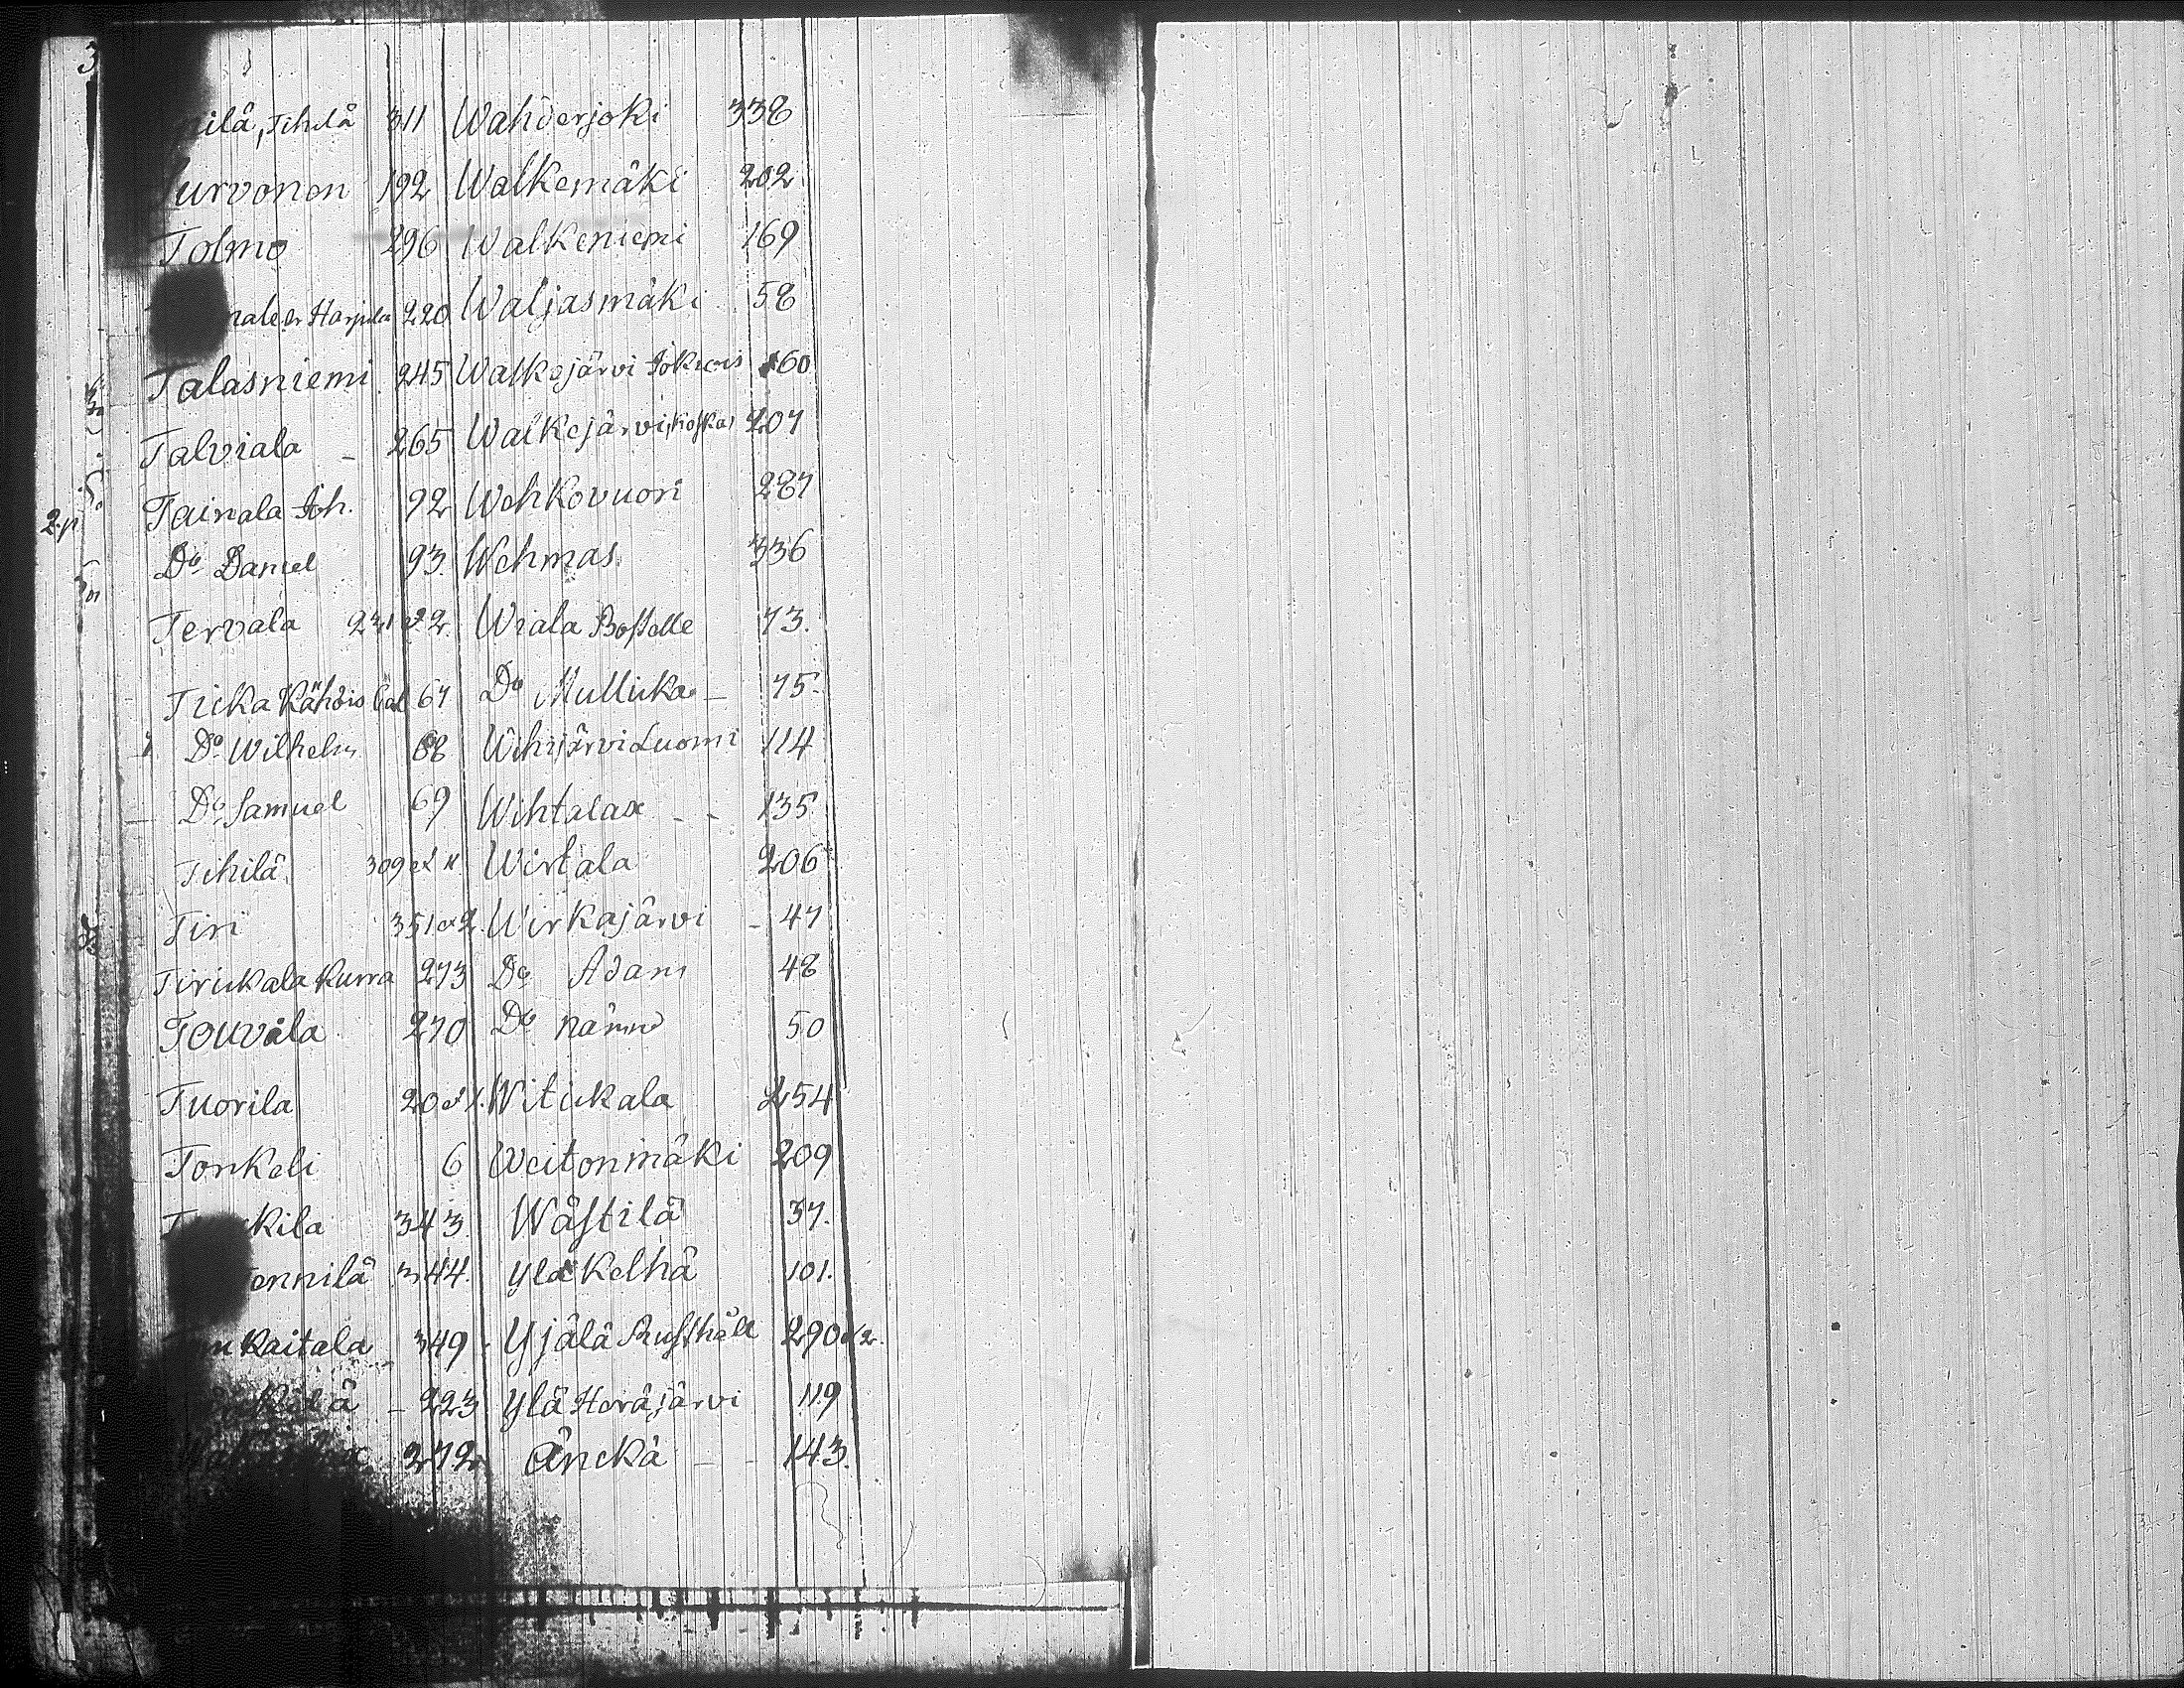 Tihilä 311 Wahderjoki 338
urvonen 192 Walkemäki 202
Tolmo 296 Walkeniemi 169
220 Waljasmäki 58
Talasniemi 245 Walkejärvi 160
Talviala 265 Walkejärvi 207
Tainala Joh. 92 Wehkovuori 287
Do Daniel 93 Wehmas 336
Tervala Wiala 73.
67 Do Mullicka 75.
Do Wilhelm 68 Wihijärvi Luomi 114
Do Samuel 69 Wihtalax 135
Tihilä 309 Wirtala 206
Tiri 351 & 2. Wirkajärvi 47
Tirickala Kurra 273 Do Adam 48
Touvala 270 Do 50
Tuorila 20 & 1. Witickala 254
Tonkeli 6 Weitonmäki 209
kila 343. Wästilä 37.
ennilä 344. Yläkelhä 101.
kaitala 349 Yjälä Rusthåll 290 & 2.
223 Ylä Heräjärvi 119
272 143.